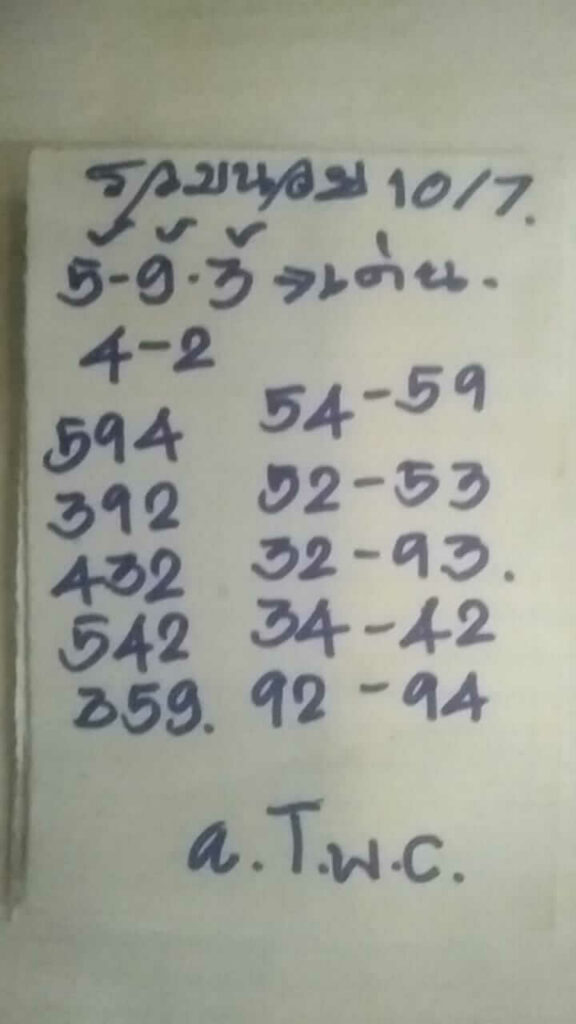 รวมหนอย 10/7.
5-9.3 → เด่น.
4-2
594 54-59
392 52-53
432 32-93.
542 34-42
359. 92-94
a.T.พ.c.